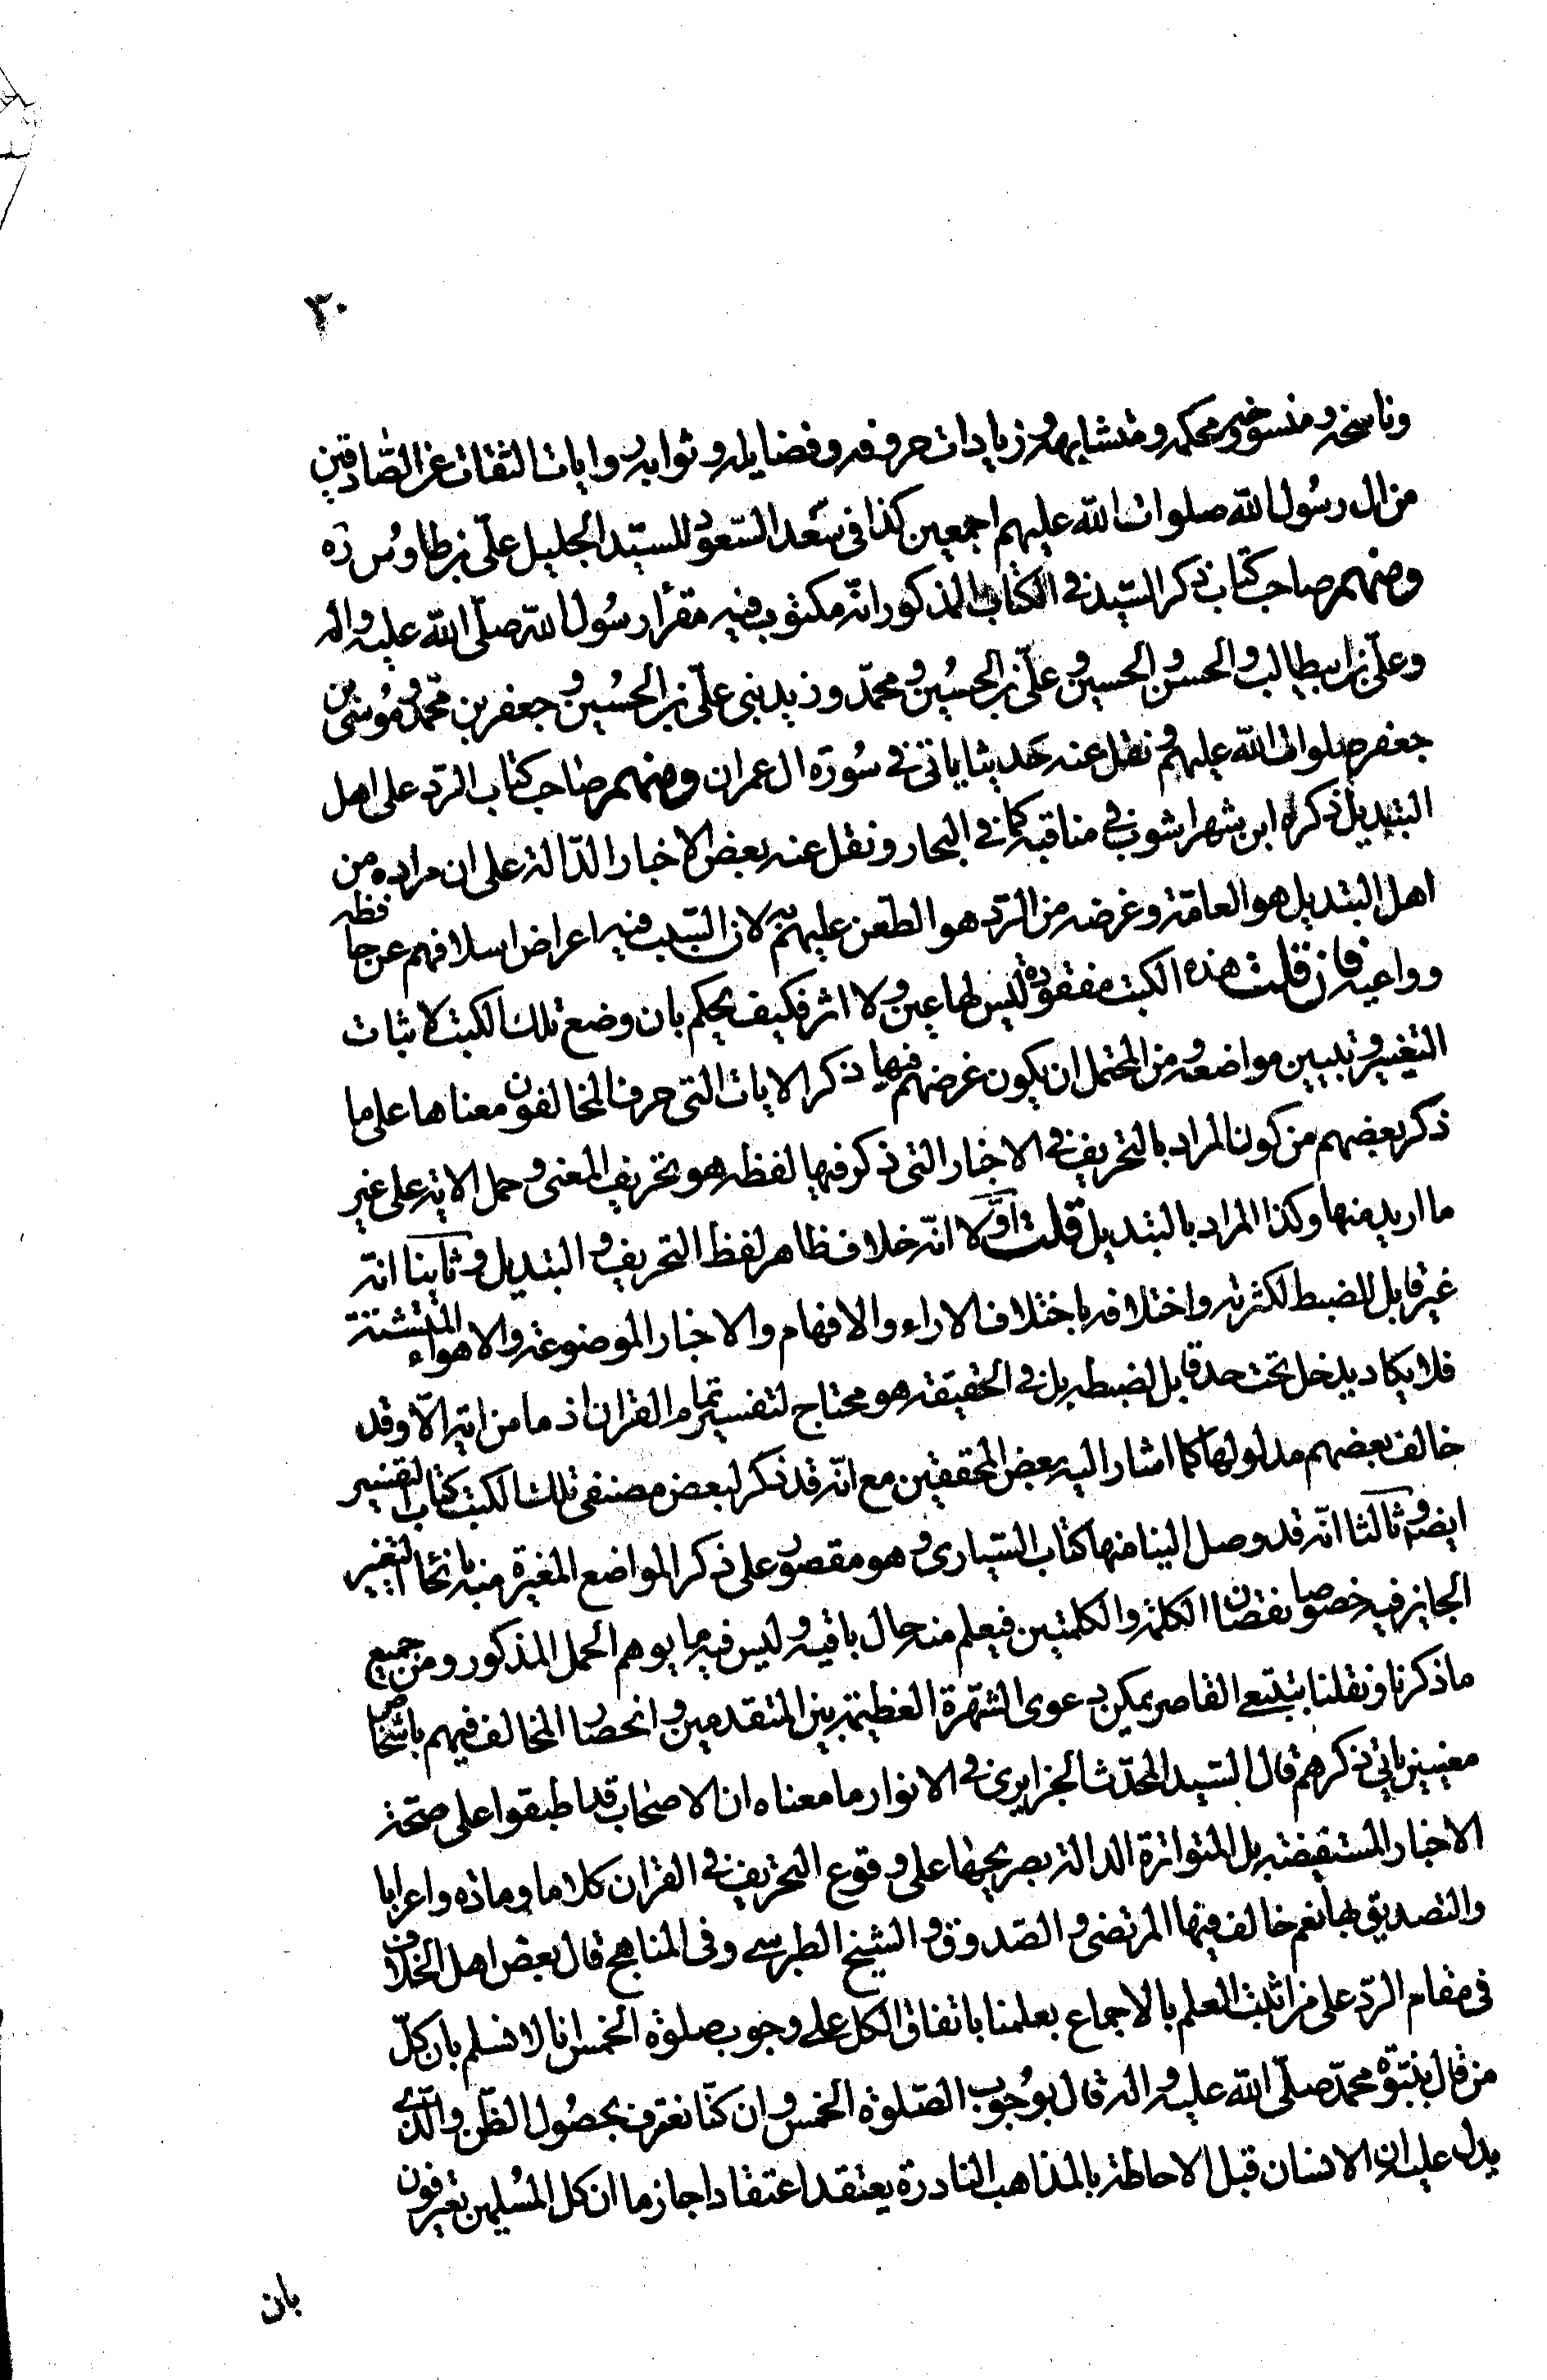 ٣٠
وناسخه ومنسوخه ومحكمه ومتشابهه وزيادات حروفه وفضايله وثوابه روايات الثقات عن الصّادقين
من ال رسول الله صلوات الله عليهم اجمعين كذا في سعد السّعود للسيّد الجليل علي بن طاوس ره
ومنهم صاحب كتاب ذكر السّيد في الكتاب المذكور انّه مكتوب فيه مقرأ رسول الله صلّى الله عليه واله
وعليّ بن ابيطالب والحسن والحسين وعلّي بن الحسين ومحمّد وزيد بني علّي بن الحسين وجعفر بن محمّد وموسى بن
جعفر صلوات الله عليهم ونقل عنه حديثا ياتي في سورة ال عمران ومنهم صاحب كتاب الرّد على اهل
التبديل ذكره ابن شهراشوب في مناقبه كما في البحار ونقل عنه بعض الاخبار الدّالة على ان مراده من
اهل التبديل هو العامّة وغرضه من الرّد هو الطّعن عليهم به لان السّبب فيه اعراض اسلافهم عن حافظه
وواعيه فان قلت هذه الكتب مفقودة ليس لها عين ولا اثر فكيف يحكم بان وضع تلك الكتب لاثبات
التغيير وتبيين مواضعه ومن المحتمل ان يكون غرضهم فيها ذكر الايات التي حرف المخالفون معناها على ما
ذكر بعضهم من كون المراد بالتحريف في الاخبار التي ذكر فيها لفظه هو تحريف المعنى وحمل الاية على غير
ما اريد منها وكذا المراد بالتبديل قلت اوّلا انّه خلاف ظاهر لفظ التحريف والتبديل وثانيا انّه
غير قابل للضبط لكثرته واختلافه باختلاف الاراء والافهام والاخبار الموضوعة والاهواء المتشتتة
فلا يكاد يدخل تحت حد قابل لضبطه بل في الحقيقة هو محتاج لتفسير تمام القران اذ ما من اية الّا وقد
خالف بعضهم مدلولها كما اشار اليه بعض المحققين مع انّه قد ذكر لبعض مصنفي تلك الكتب كتاب التفسير
ايضا وثالثا انّه قد وصل الينا منها كتاب السّياري وهو مقصور على ذكر المواضع المغيرة منه بانحاء التغيير
الجايز فيه خصوصا نقصان الكلمة والكلمتين فيعلم منه حال باقيه وليس فيه ما يوهم الحمل المذكور ومن جميع
ما ذكرنا ونقلنا بتتبعي القاصر يمكن دعوى الشّهرة العظيمة بين المتقدمين وانحصار المخالف فيهم باشخاص
معينين ياتي ذكرهم قال السّيد المحدّث الجزايري في الانوار ما معناه ان الاصحاب قد اطبقوا على صحّة
الاخبار المستفيضة بل المتواترة الدالة بصريحها على وقوع التحريف في القران كلاما ومادة واعرابا
والتصديق بها نعم خالف فيها المرتضى والصّدوق والشيخ الطبرسي وفى المناهج قال بعض اهل الخلاف
في مقام الرّد على من اثبت العلم بالاجماع بعلمنا باتفاق الكل على وجوب صلوة الخمس انا لا نسلم بان كلّ
من قال بنبّوة محمّد صلّى الله عليه واله قال بوجوب الصّلوة الخمس وان كنّا نعترف بحصول الظّن والّذي
يدل عليه ان الانسان قبل الاحاطة بالمذاهب النادرة يعتقد اعتقادا جازما ان كل المسلمين يعترفون
بان